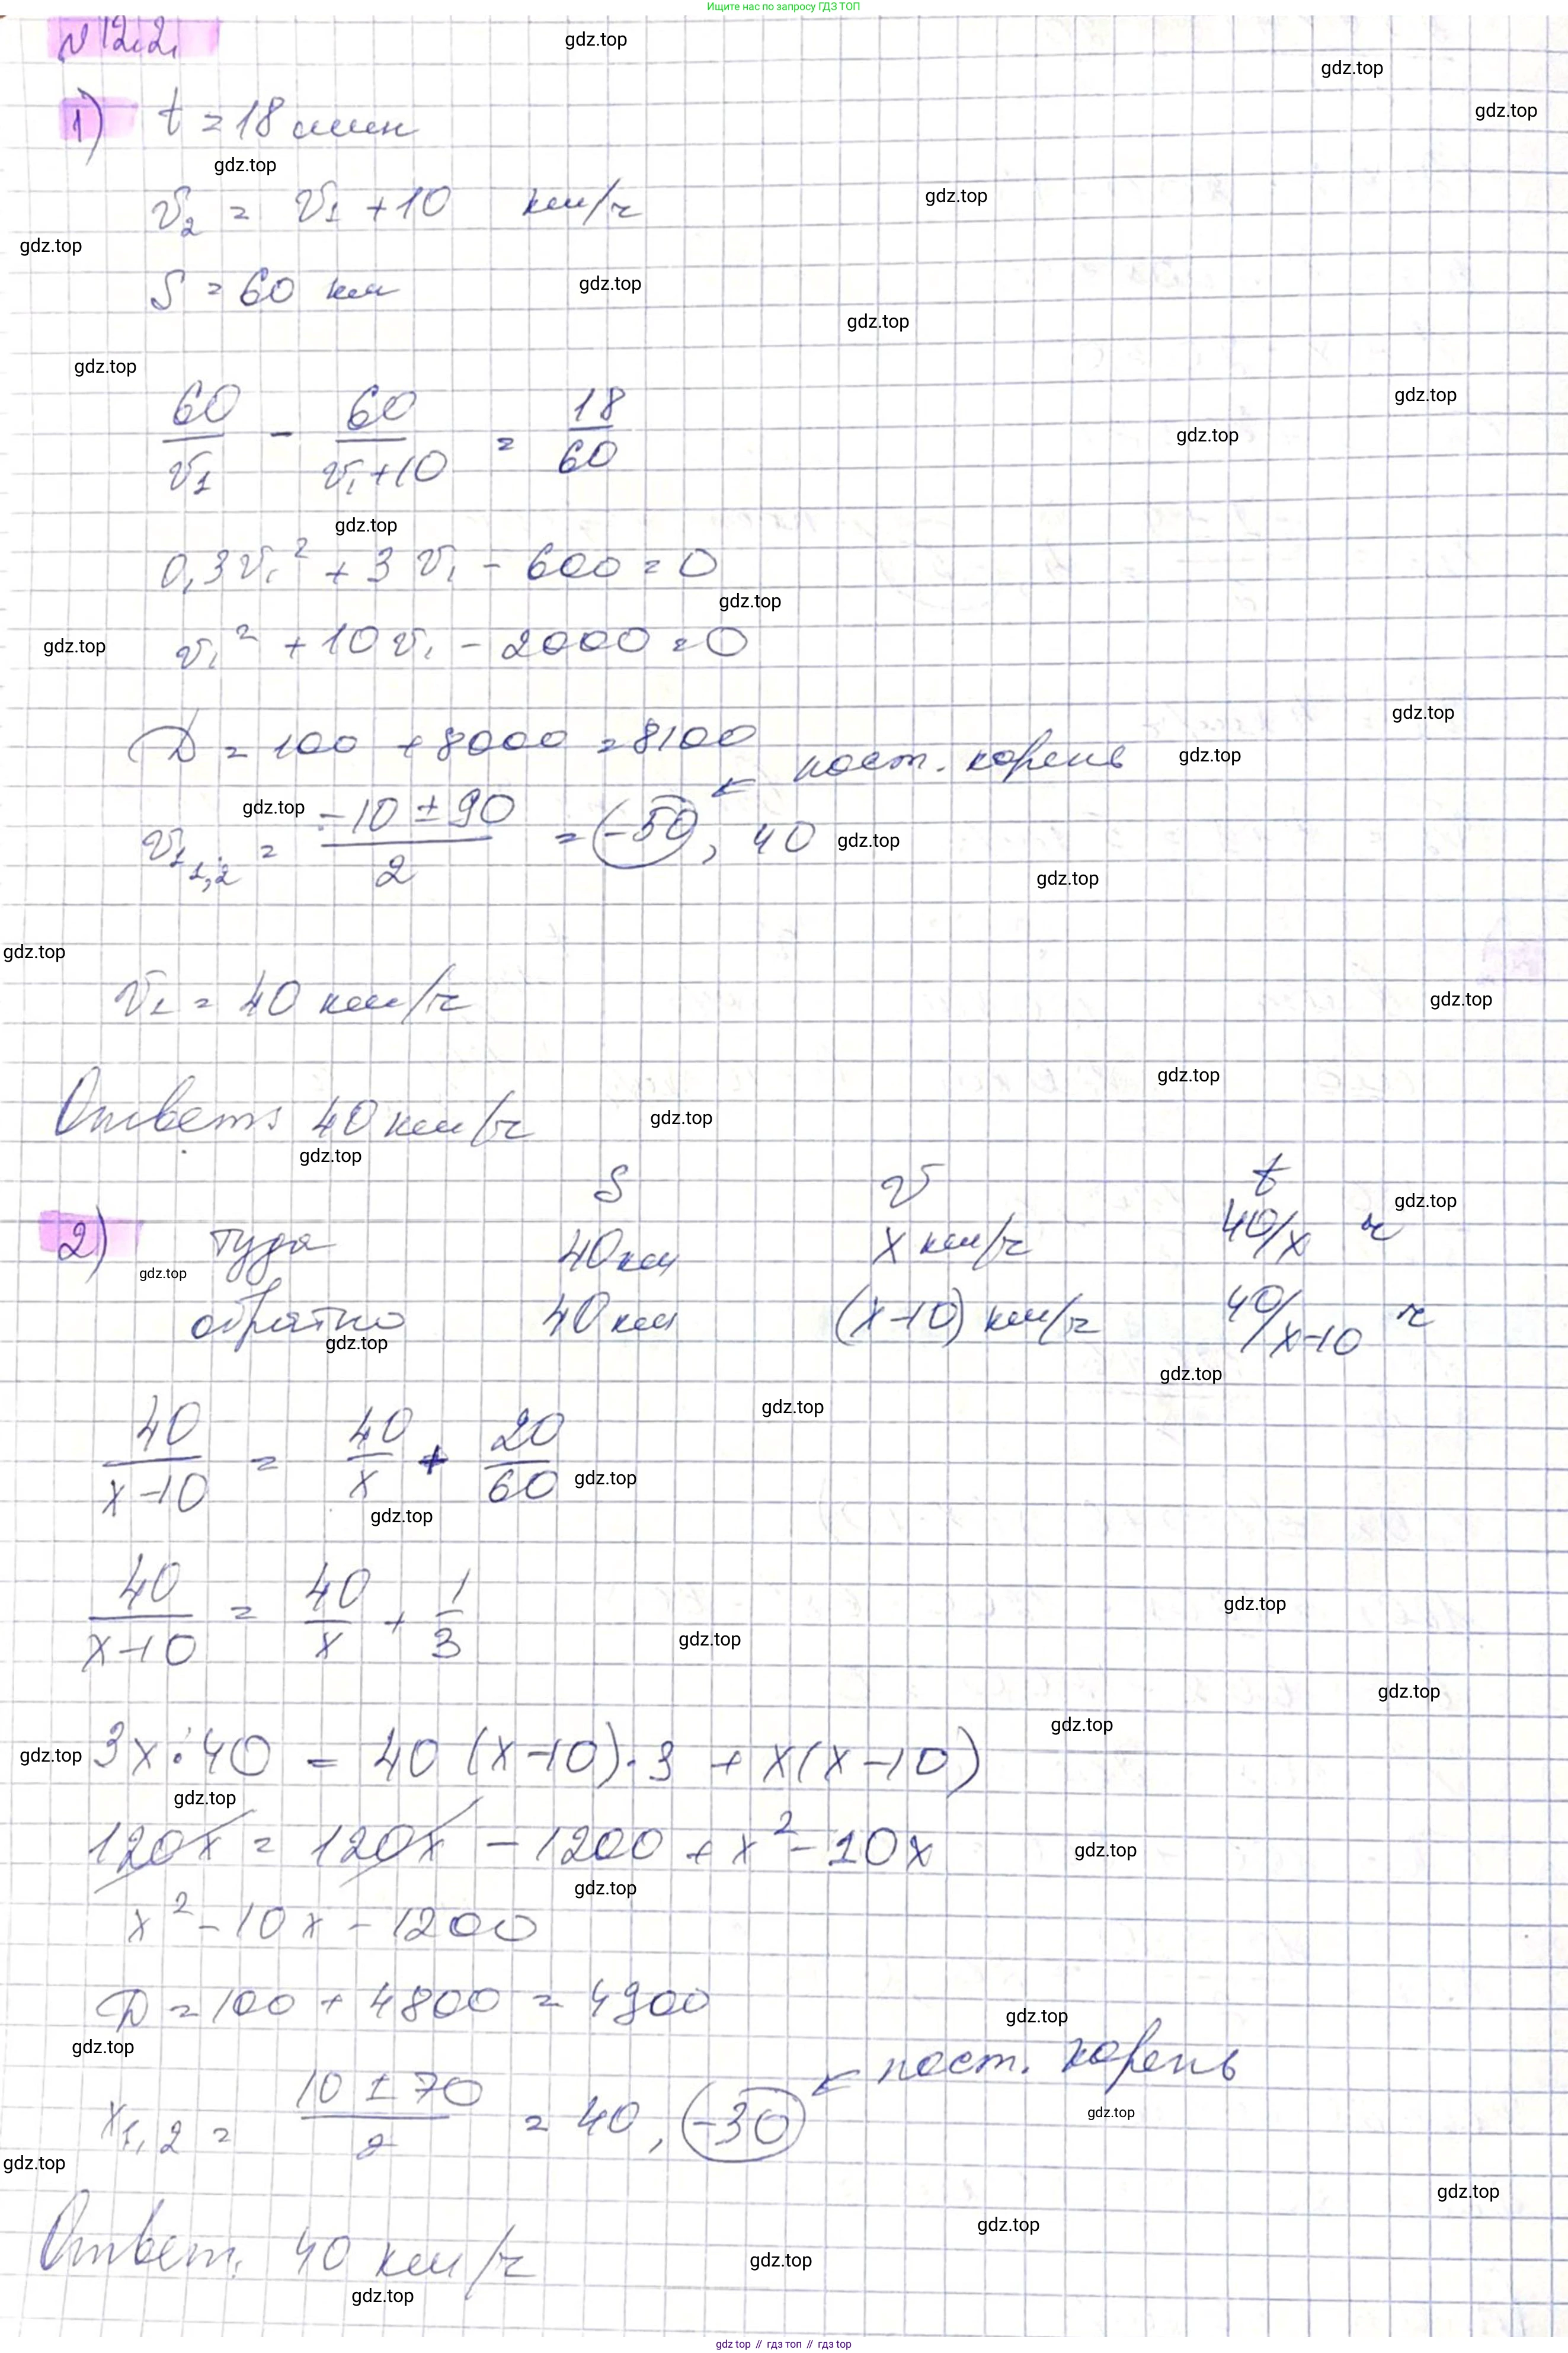 Ищите нас по запросу ГДЗ ТОП
№ 12.2.
gdz.top
gdz.top
1) t = 18 мин
gdz.top
gdz.top
v₂ = v₁ + 10 км/ч
gdz.top
gdz.top
S = 60 км
gdz.top
gdz.top
gdz.top
60/v₁ - 60/(v₁+10) = 18/60
gdz.top
gdz.top
gdz.top
0,3v₁² + 3v₁ - 600 = 0
gdz.top
v₁² + 10v₁ - 2000 = 0
gdz.top
gdz.top
D = 100 + 8000 = 8100
← пост. корень
gdz.top
v₁ ₁,₂ = (-10 ± 90)/2 = (-50), 40
gdz.top
gdz.top
gdz.top
gdz.top
v₁ = 40 км/ч
gdz.top
gdz.top
Ответ: 40 км/ч
gdz.top
gdz.top
S v t
gdz.top
2) туда 40 км x км/ч 40/x ч
gdz.top
обратно 40 км (x-10) км/ч 40/x-10 ч
gdz.top
gdz.top
gdz.top
40/(x-10) = 40/x + 20/60
gdz.top
gdz.top
40/(x-10) = 40/x + 1/3
gdz.top
gdz.top
gdz.top
gdz.top
3x·40 = 40(x-10)·3 + x(x-10)
gdz.top
gdz.top
120x = 120x - 1200 + x² - 10x
gdz.top
gdz.top
x² - 10x - 1200
D = 100 + 4800 = 4900
gdz.top
gdz.top
← пост. корень
x₁,₂ = (10 ± 70)/2 = 40, (-30)
gdz.top
gdz.top
gdz.top
gdz.top
Ответ: 40 км/ч
gdz.top
gdz.top
gdz.top // гдз топ // гдз top